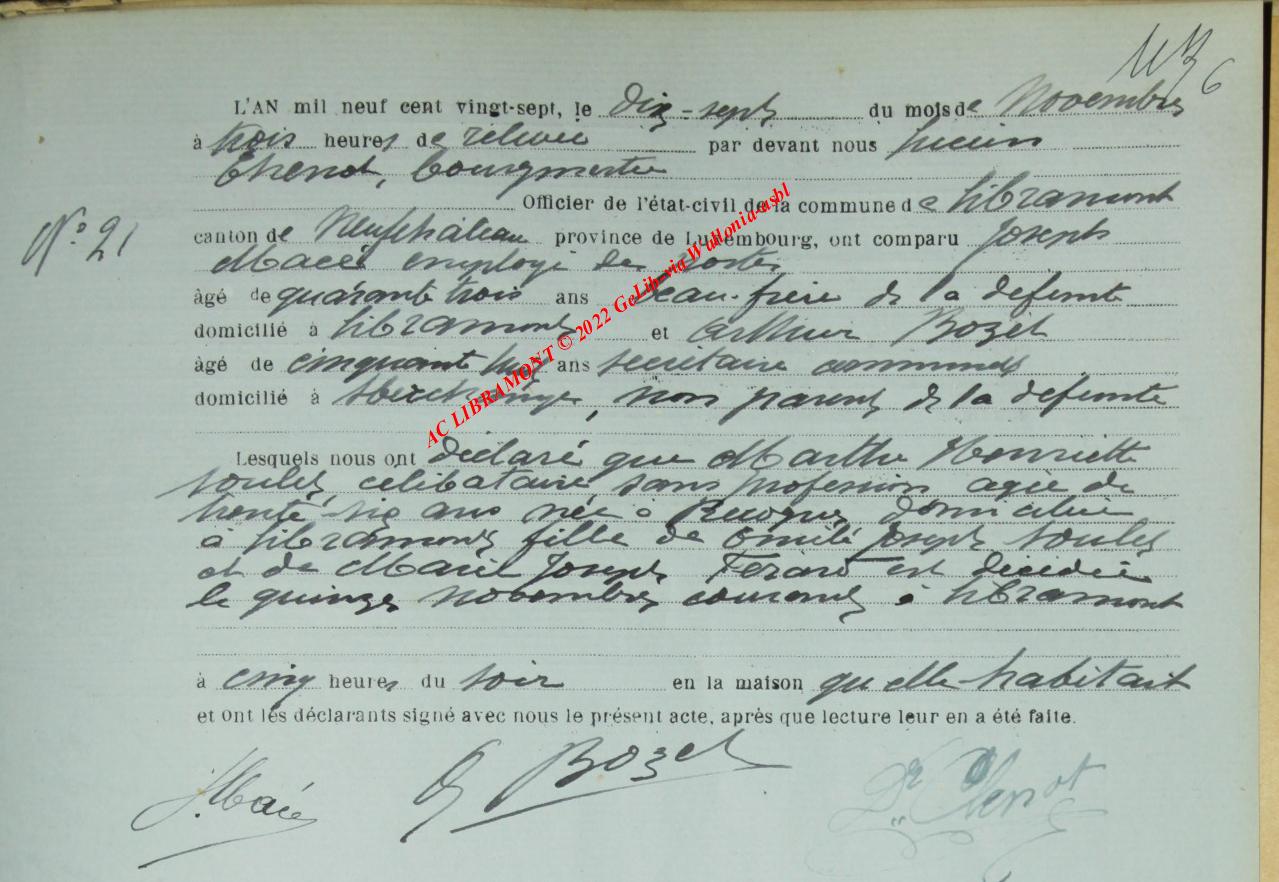 6
L'AN mil neuf cent vingt-sept, le Dix-sept du mois de Novembre
à trois heures de relevée par devant nous Lucien
Thenot, Bourgmestre
Officier de l'état-civil de la commune de Libramont
N° 21
canton de Neufchâteau province de Luxembourg, ont comparu Joseph
employé des postes
âgé de quarante trois ans beau-frère de la défunte
domicilié à Libramont et Arthur Bozet
âgé de cinquante ans secrétaire communal
domicilié à, non parent de la défunte
Lesquels nous ont déclaré que Marthe Henriette
célibataire sans profession agée de
trente-six ans née à Recogne domiciliée
à Libramont fille de Emile Joseph
et de Marie Joseph est décédée
le quinze novembre courant à Libramont
à cinq heures du soir en la maison qu'elle habitait
et ont les déclarants signé avec nous le présent acte, après que lecture leur en a été faite.
Bozet
AC LIBRAMONT © 2022 GeLibraria Wallonia asbl